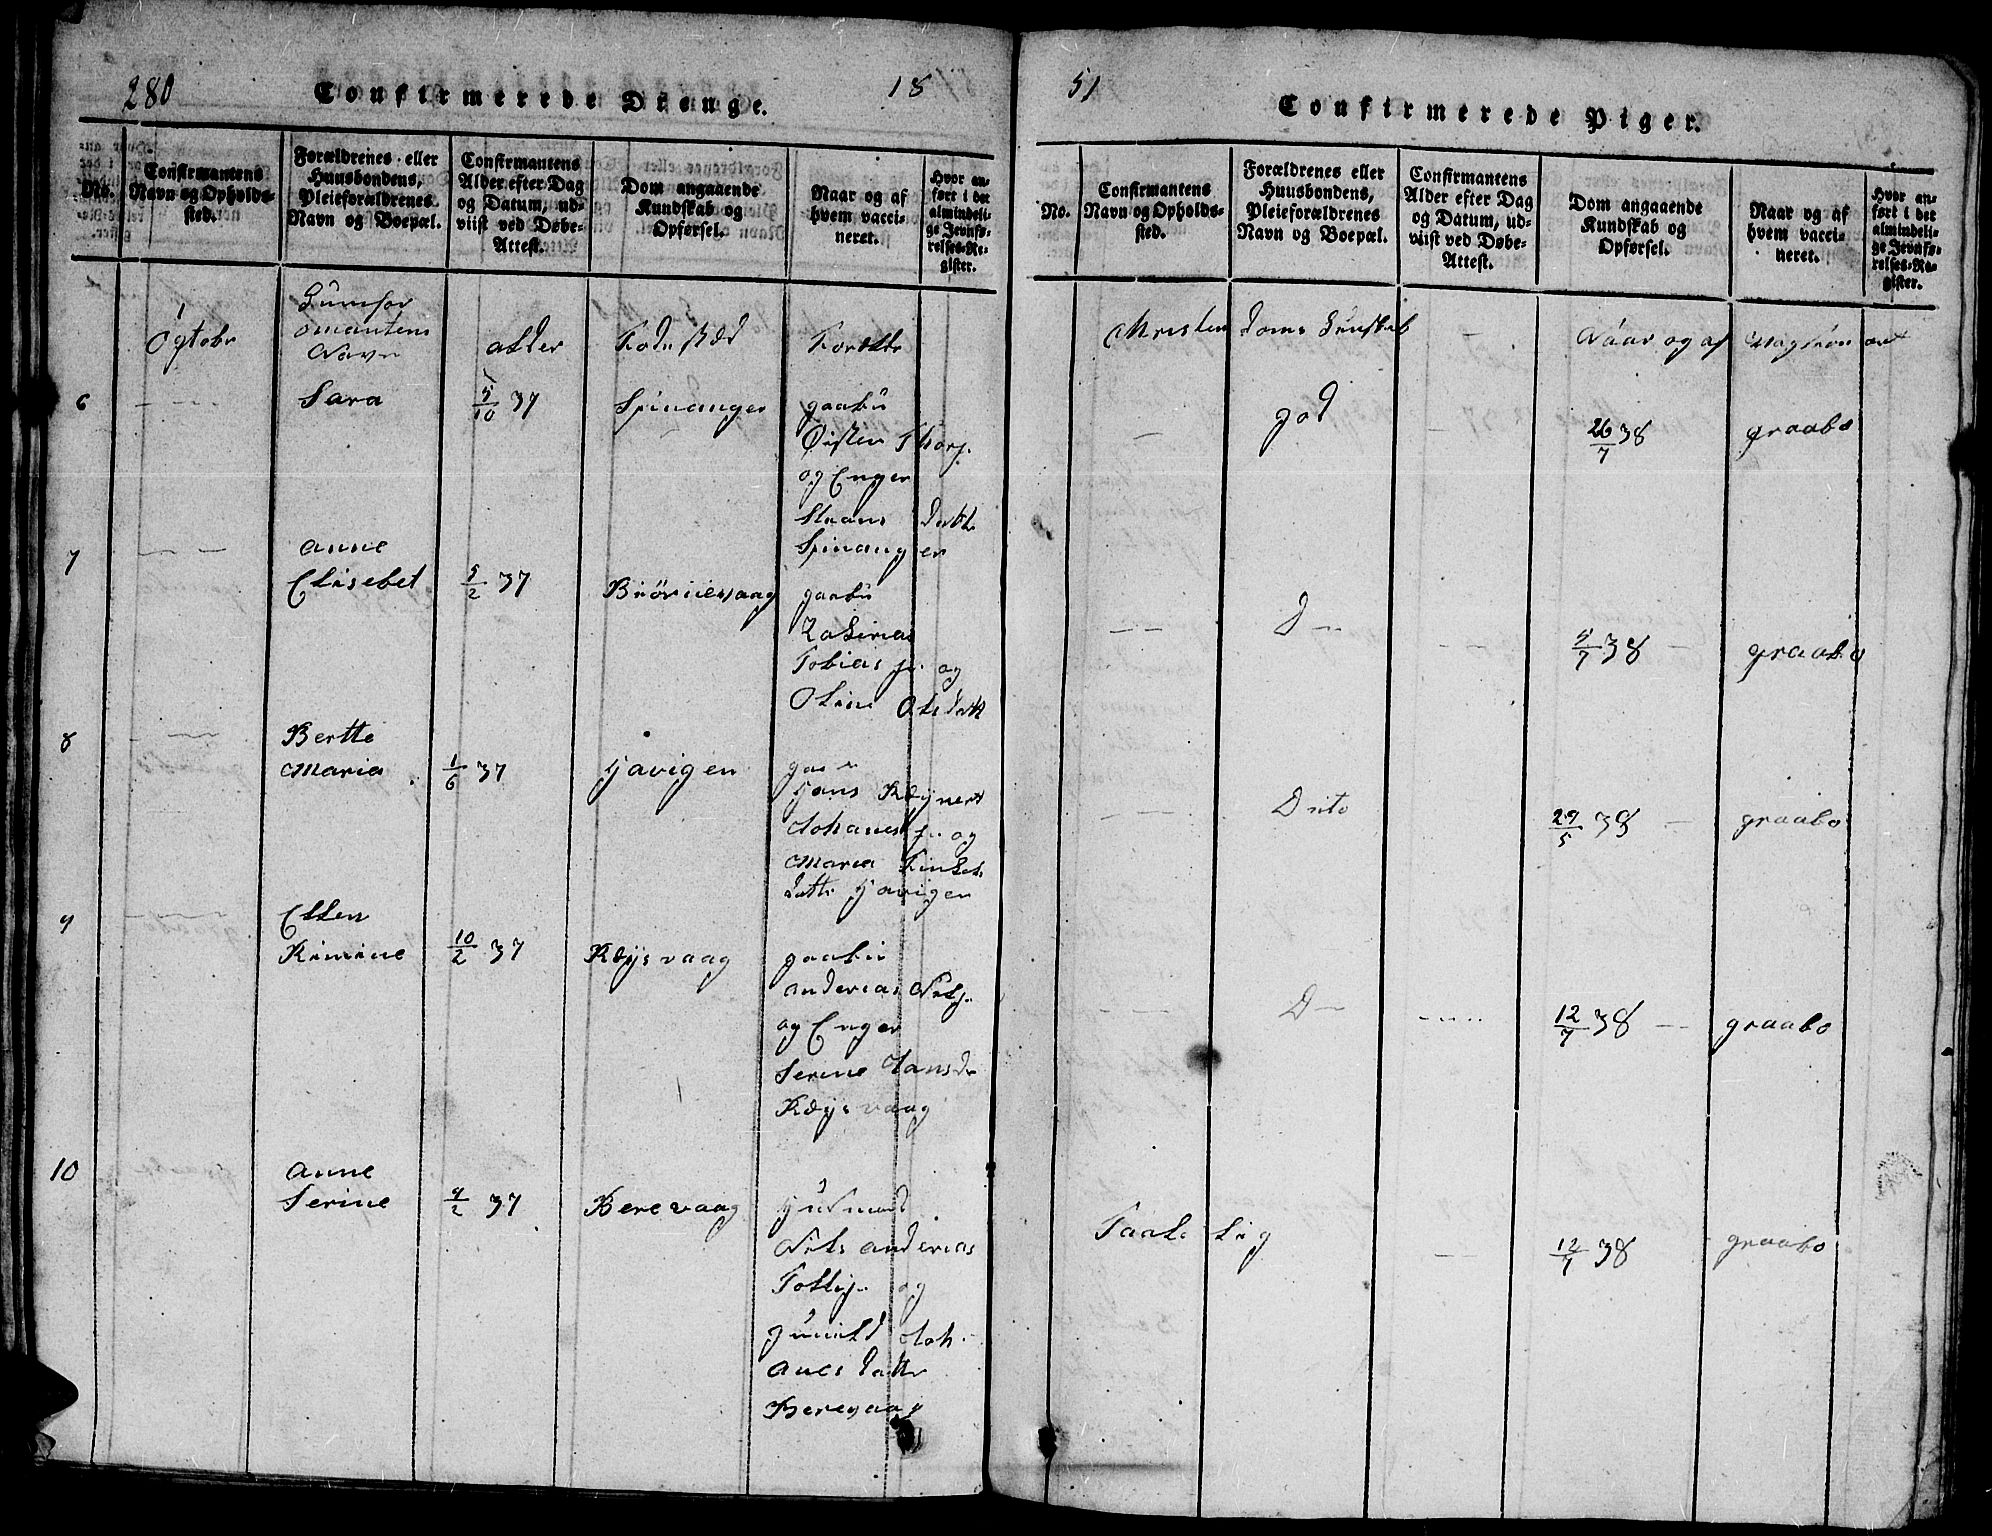 280
Confirmerede Drenge.
18
No.
Confirmantens
Navn og Opholds-
sted.
Forældrenes eller
Huusbondens,
Pleieforældrenes
Navn og Boepæl.
Confirmantens
Alder efter Dag
og Datum, ud-
viist ved Døbe-
Attest.
Dom angaaende
Kundskab og
Opførsel.
Naar og af
hvem vacci-
neret.
Hvor an-
ført i det
almindeli-
ge Jevnfø-
relses-Re-
gister.
alder
Navn
6
Sara
5/10 37
Spinanger
gaabu
Øisten Thorj.
og Enger
Spinanger
7
Anne
Elisebet
5/2 37
Biörnevaag
gaabu
Tobias og
Oline Olsdatt
8
Bertte
Maria
1/6 37
Havigen
Hans Reynert
Johanes og
Maria
datte Havigen
9
Ellen
Rimine
10/2 37
Reysvaag
gaabu
Anderias
og Enger
Serine Hansd
Reysvaag
10
Anne
Serine
4/2 37
Berevaag
Husmand
Nils Anderias
og
Gunild Joh
anes datte
Berevaag
51
Confirmerede Piger.
No.
Confirmantens
Navn og Opholds-
sted.
Forældrenes eller
Huusbondens,
Pleieforældrenes
Navn og Boepæl.
Confirmantens
Alder efter Dag
og Datum, ud-
viist ved Døbe-
Attest.
Dom angaaende
Kundskab og
Opførsel.
Naar og af
hvem vacci-
neret.
Hvor an-
ført i det
almindeli-
ge Jevnfø-
relses-Re-
gister.
Christen doms Naar og af
god 26/7 38 graabo
D 4/7 38 graabo
Dito 29/5 38 graabo
D 12/7 38 graabo
Taalelig 12/7 38 graabo